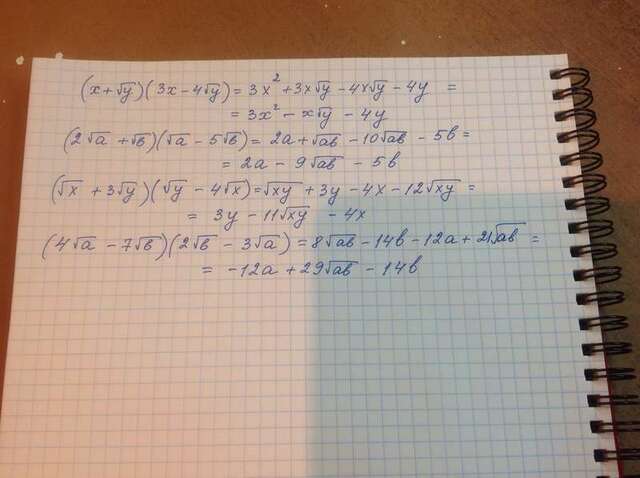 (x+√y)(3x-4√y)= 3x²+3x√y-4x√y-4y =
= 3x²-x√y-4y
(2√a+√b)(√a-5√b)= 2a+√ab-10√ab-5b=
= 2a-9√ab-5b
(√x+3√y)(√y-4√x)=√xy+3y-4x-12√xy=
= 3y-11√xy-4x
(4√a-7√b)(2√b-3√a)=8√ab-14b-12a+21√ab=
= -12a+29√ab-14b